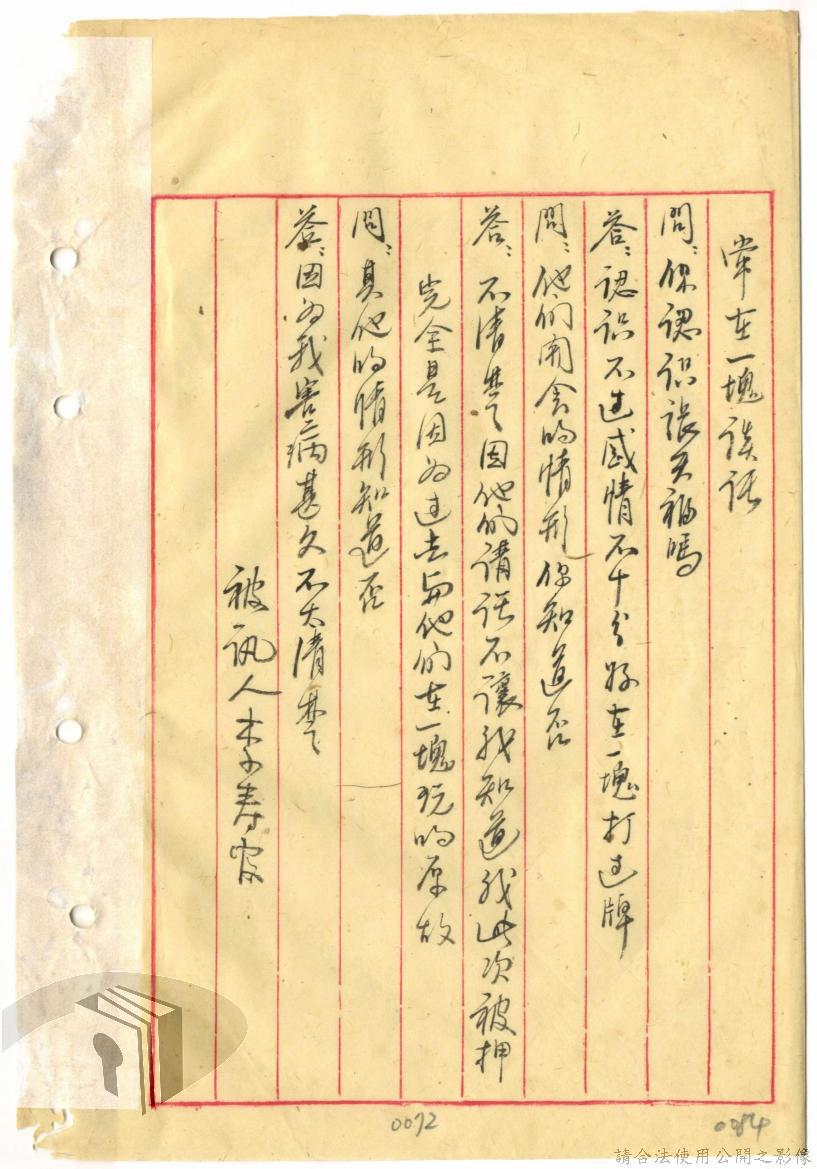 常在一塊談話
問：你認識張天福嗎
答：認识不过感情不十分好在一塊打过牌
問：他們開会的情形你知道否
答：不清楚因他們講話不讓我知道我此次被押
完全是因为过去与他們在一塊玩的原故
問：其他的情形知道否
答：因为我害病甚久不大清楚
被訊人李寿官
0072
0084
請合法使用公開之影像